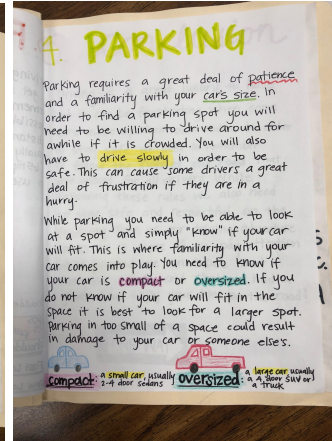 4. PARKING
Parking requires a great deal of patience
and a familiarity with your car's size. In
order to find a parking spot you will
need to be willing to drive around for
awhile if it is crowded. You will also
have to drive slowly in order to be
safe. This can cause some drivers a great
deal of frustration if they are in a
hurry.
While parking you need to be able to look
at a spot and simply "know" if your car
will fit. This is where familiarity with your
car comes into play. You need to know if
your car is compact or oversized. If you
do not know if your car will fit in the
space it is best to look for a larger spot.
Parking in too small of a space could result
in damage to your car or someone else's.
compact: a small car, usually 2-4 door sedans
oversized: a large car usually a 4 door SUV or a truck